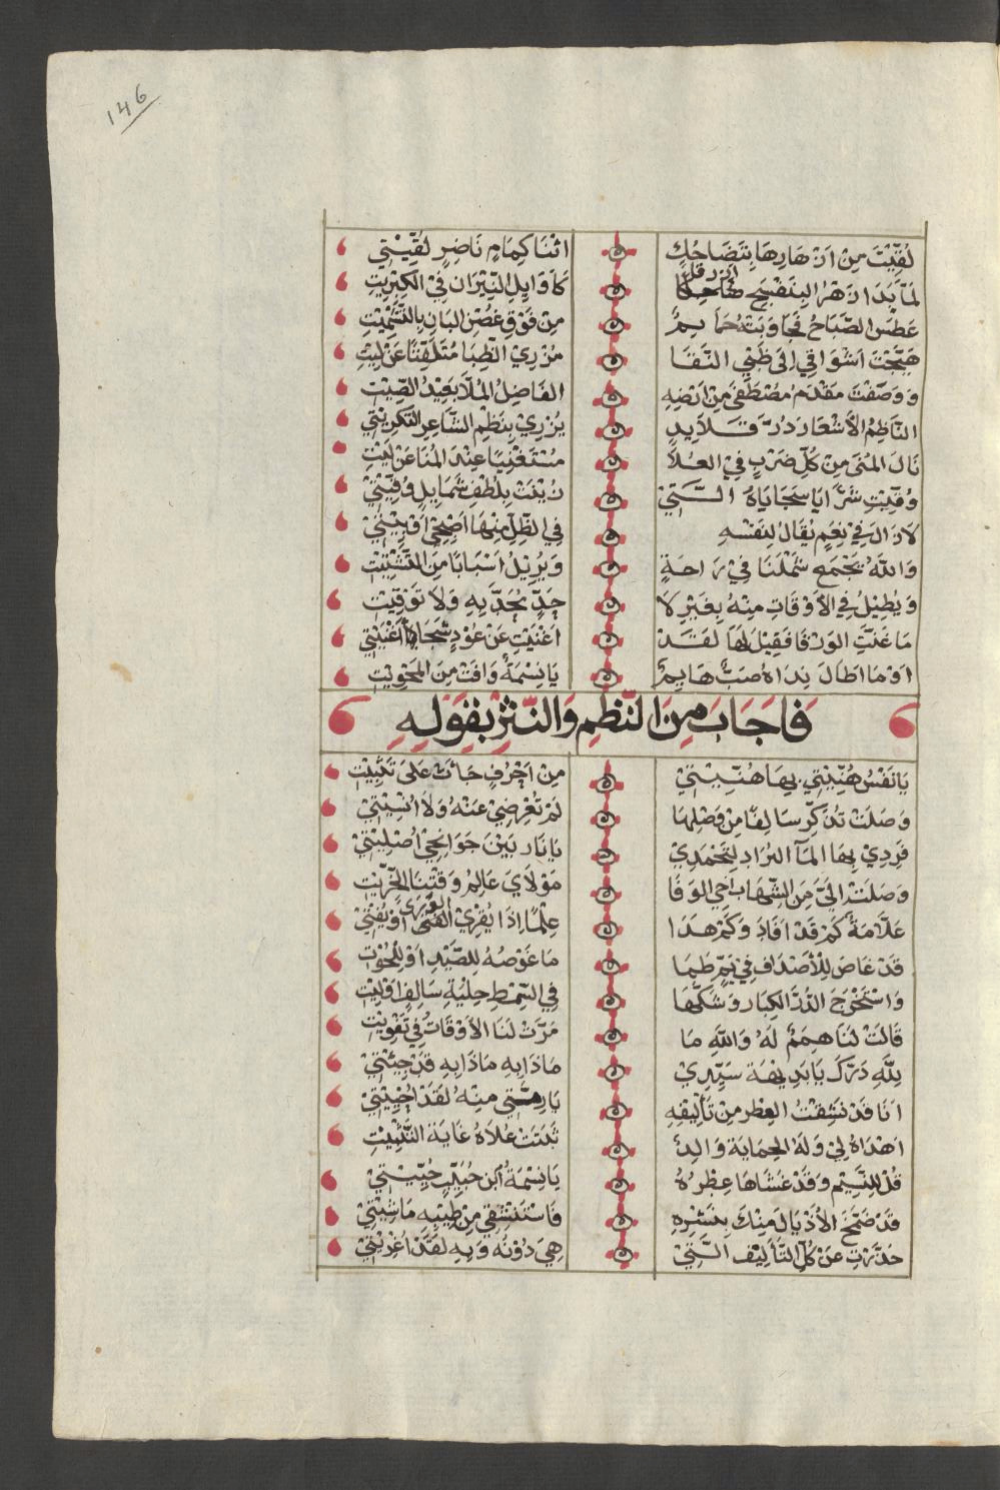 146
لُقِّيْتَ مِنْ اَزْهَارِهَا بِتَضَاحُكٍ اثْنَا كِمَامٍ نَاضِرٍ لُقِّيْتِي
لَمَّا بَدَا زَهْرُ البَنَفْسَجِ كَاَوَايِلِ النِّيْرَانِ فِيْ الكِبْرِيتِ
عَطَسَ الصَّبَاحُ فَجَاوَبَتْهُ حَمَايِمٌ مِنْ فَوْقِ غُصْنِ البَانِ بِالتَّشْمِيْتِ
هَيَّجْتَ اَشْوَاقِي اِلَى ظَبْيِ النَّقَا مُزْرِيْ الظِّبَا مُتَلَفِّتًا عَنْ لِيْتِ
وَوَصَفْتَ مَقْدَمَ مُصْطَفَى مِنْ اَرْضِهِ الفَاضِلُ المُلَّا بَعِيْدُ الصِّيْتِ
النَّاظِمُ الأَشْعَارَ دُرَّ قَلَايِدٍ يُزْرِيْ بِنَظْمِ الشَّاعِرِ التَّكْرِيْتِي
نَالَ المُنَى مِنْ كُلِّ ضَرْبٍ فِيْ العُلَا مُسْتَغْنِيًا عِنْدَ المُنَا عَنْ لَيْتِ
وُقِّيْتِ شَرَّا يَا سَجَايَاهُ الَّتِيْ زُيِّنَتْ بِلُطْفِ شَمَايِلٍ وُقِّيْتِيْ
لَا زَالَ فِيْ نِعَمٍ يُقَالُ لِنَفْسِهِ فِي الظِّلِّ مِنْهَا اَصْبِحِيْ اَوْ بِيْتِيْ
وَاللهُ يَجْمَعُ شَمْلَنَا فِيْ رَاحَةٍ وَيُزِيْلُ اَسْبَابًا مِنَ التَّشْتِيْتِ
وَيُطِيْلُ فِي الأَوْقَاتِ مِنْهُ بِغَيْرِ لَا جِدٍّ نُجَدُّ بِهِ وَلَا تَوْقِيْتِ
مَا غَنَّتِ الوَرْقَا فَقِيْلَ لَهَا لَقَدْ اَغْنَيْتِ عَنْ عُوْدٍ اَغْنَيْتِي
اَوْ مَا اَطَالَ نِدَاهُ صَبٌّ هَايِمٌ يَا نِسْمَةً وَافَتْ مِنَ المَحْوِيْتِ
فَاَجَابَ مِنَ النَّظْمِ وَالنَّثْرِ بِقَوْلِهِ
يَا نَفْسُ هُنِّيْتِي بِهَا هُنِّيْتِيْ مِنْ اَحْرُفٍ جَاءَتْ عَلَى تَثْبِيْتِ
وَصَلَتْ تُذَكِّرُ سَالِفًا مِنْ فَضْلِهَا لَمْ تُعْرِضِيْ عَنْهُ وَلَا اُنْسِيْتِيْ
فَرِدِيْ بِهَا المَاءَ البُرَادَ لِتَخْمَدِيْ يَا نَارُ بَيْنَ جَوَانِحِيْ اُصْلِيْتِيْ
وَصَلَتْ اِلَيَّ مِنَ الشِّهَابِ اَخِي الوَفَا مَوْلَايَ عَالِمِ وَقْتِنَا الخِرِّيْتِ
عَلَّامَةٌ كَمْ قَدْ اَفَادَ وَكَمْ هَدَا عِلْمًا اِذَا يُقْرِيْ الفَتَى اَوْ يُفْتِيْ
قَدْ غَاصَ لِلْأَصْدَافِ فِيْ يَمٍّ طَمَا مَا غَوْصُهُ لِلصَّيْدِ اَوْ لِلْحُوْتِ
وَاسْتَخْرَجَ الدُّرَّ الكِبَارَ وَشَكَّهَا فِي السِّمْطِ حِلْيَةِ سَالِفٍ اَوْ لِيْتِ
قَالَتْ لَنَا هِمَمٌ لَهُ وَاللهِ مَا مَرَّتْ لَنَا الأَوْقَاتُ فِيْ تَفْوِيْتِ
لِلّهِ دَرُّكَ يَا بَدِيْهَةَ سَيِّدِيْ مَاذَا بِهِ مَاذَا بِهِ قَدْ جِئْتِيْ
اَنَا قَدْ نَشِقْتُ العِطْرَ مِنْ تَأْلِيْفِهِ يَا رِمَّتِي مِنْهُ لَقَدْ اُحْيِيْتِيْ
اَهْدَاهُ لِيْ وَلَهُ الحِمَايَةُ وَالِدٌ ثَبَتَتْ عُلَاهُ غَايَةَ التَّثْبِيْتِ
قُلْ لِلنَّسِيْمِ وَقَدْ غَشَاهَا عِطْرُهُ يَا نِسْمَةُ ابْنَ حُيِّيْتِيْ
قَدْ ضَمَّخَ الأَذْيَالَ مِنْكَ بِنَشْرِهِ فَاسْتَنْشِقِيْ مِنْ طِيْبِهِ مَا شِيْتِيْ
حَدَّرْتِ عَنْ كُلِّ التَّأَالِيْفِ الَّتِيْ هِيَ دُوْنَهُ وَبِهِ لَقَدْ اُغْرِيْتِيْ